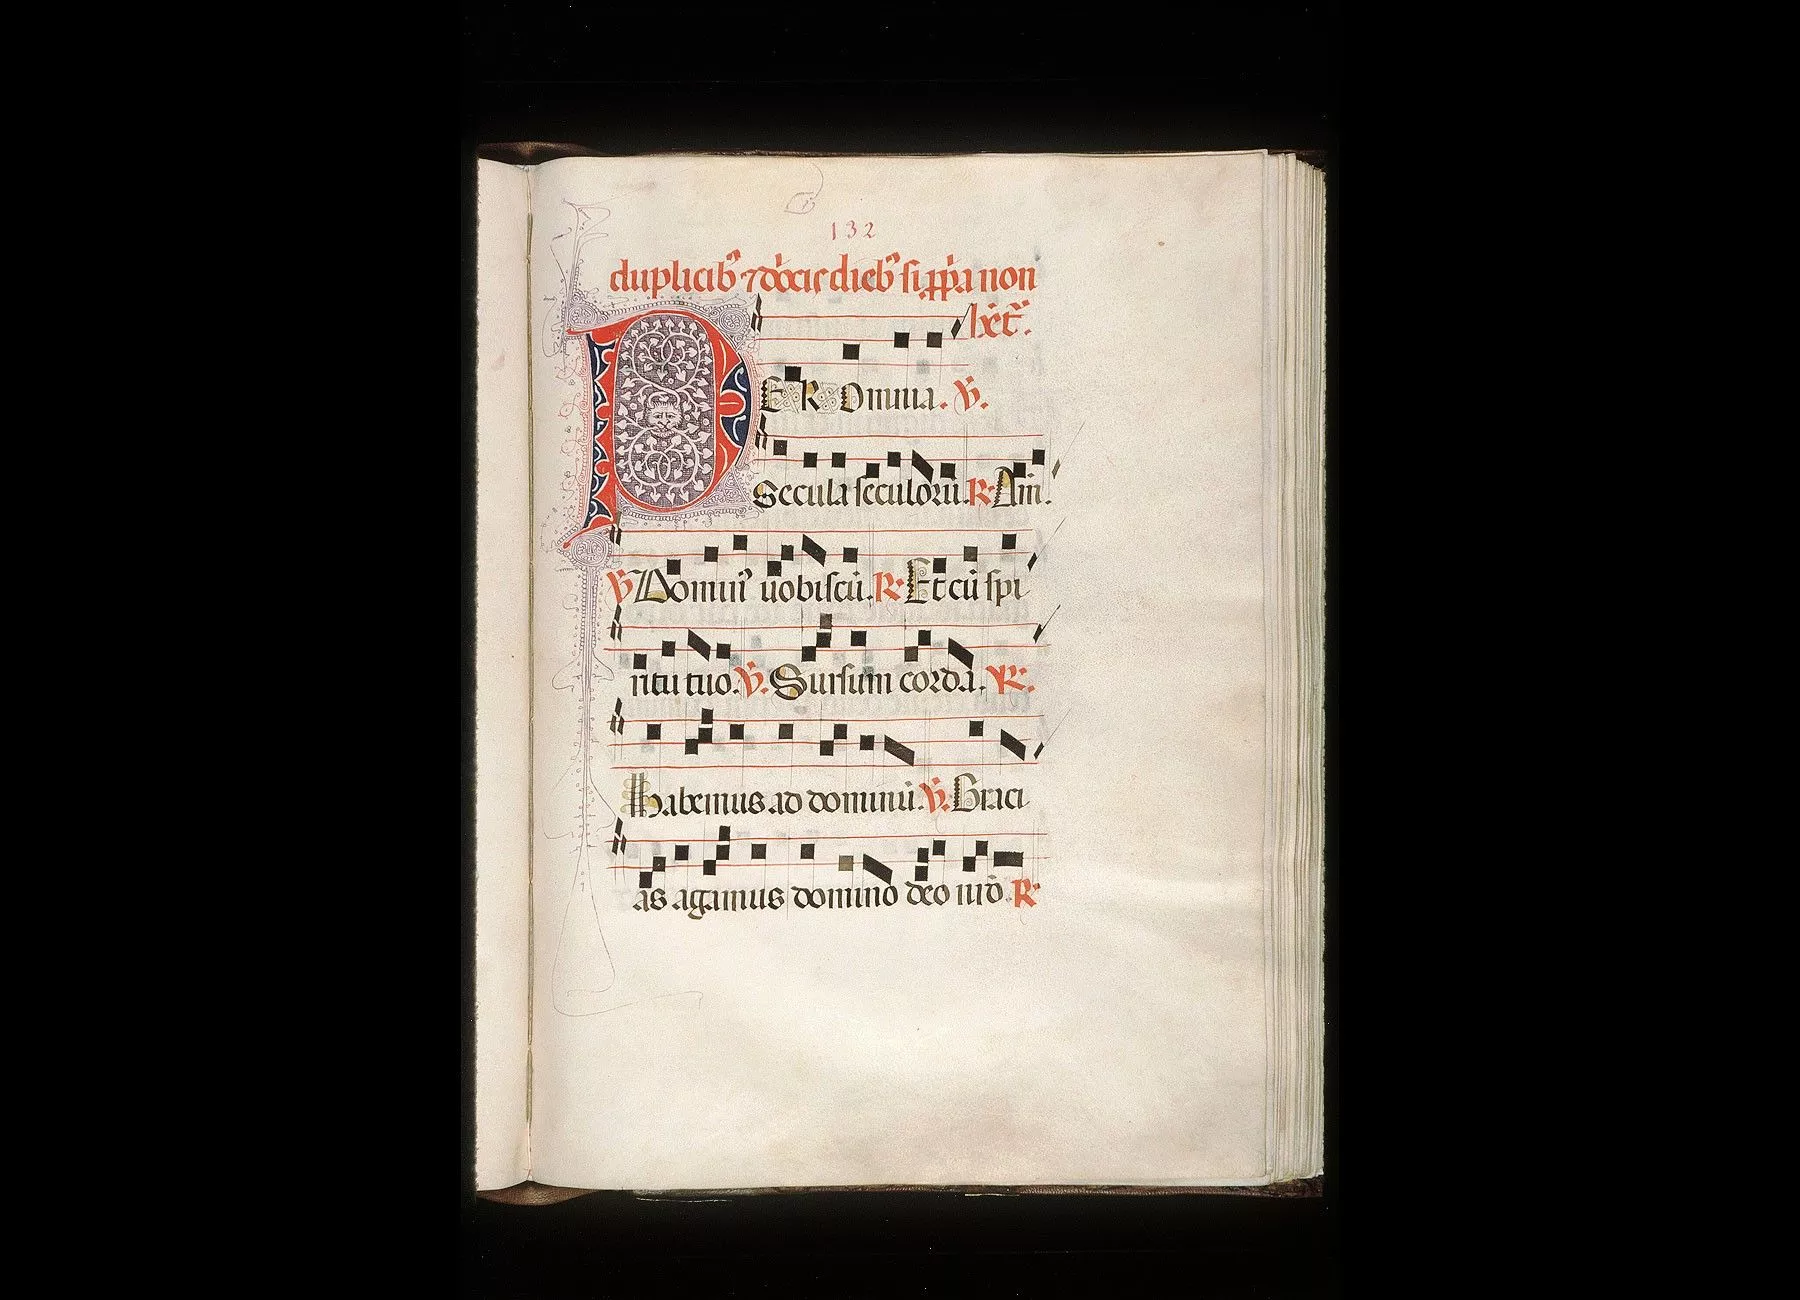 132
duplicibꝰ ⁊ dieb' si ppa non
PER Omnia. V̄.
Secula seculorū. R. Am̄.
V̄. Domin' uobiscū. R. Et cū spi
ritu tuo. V̄. Sursum corda. R.
habemus ad dominū. V̄. Graci
as agamus domino deo nr̄o. R.